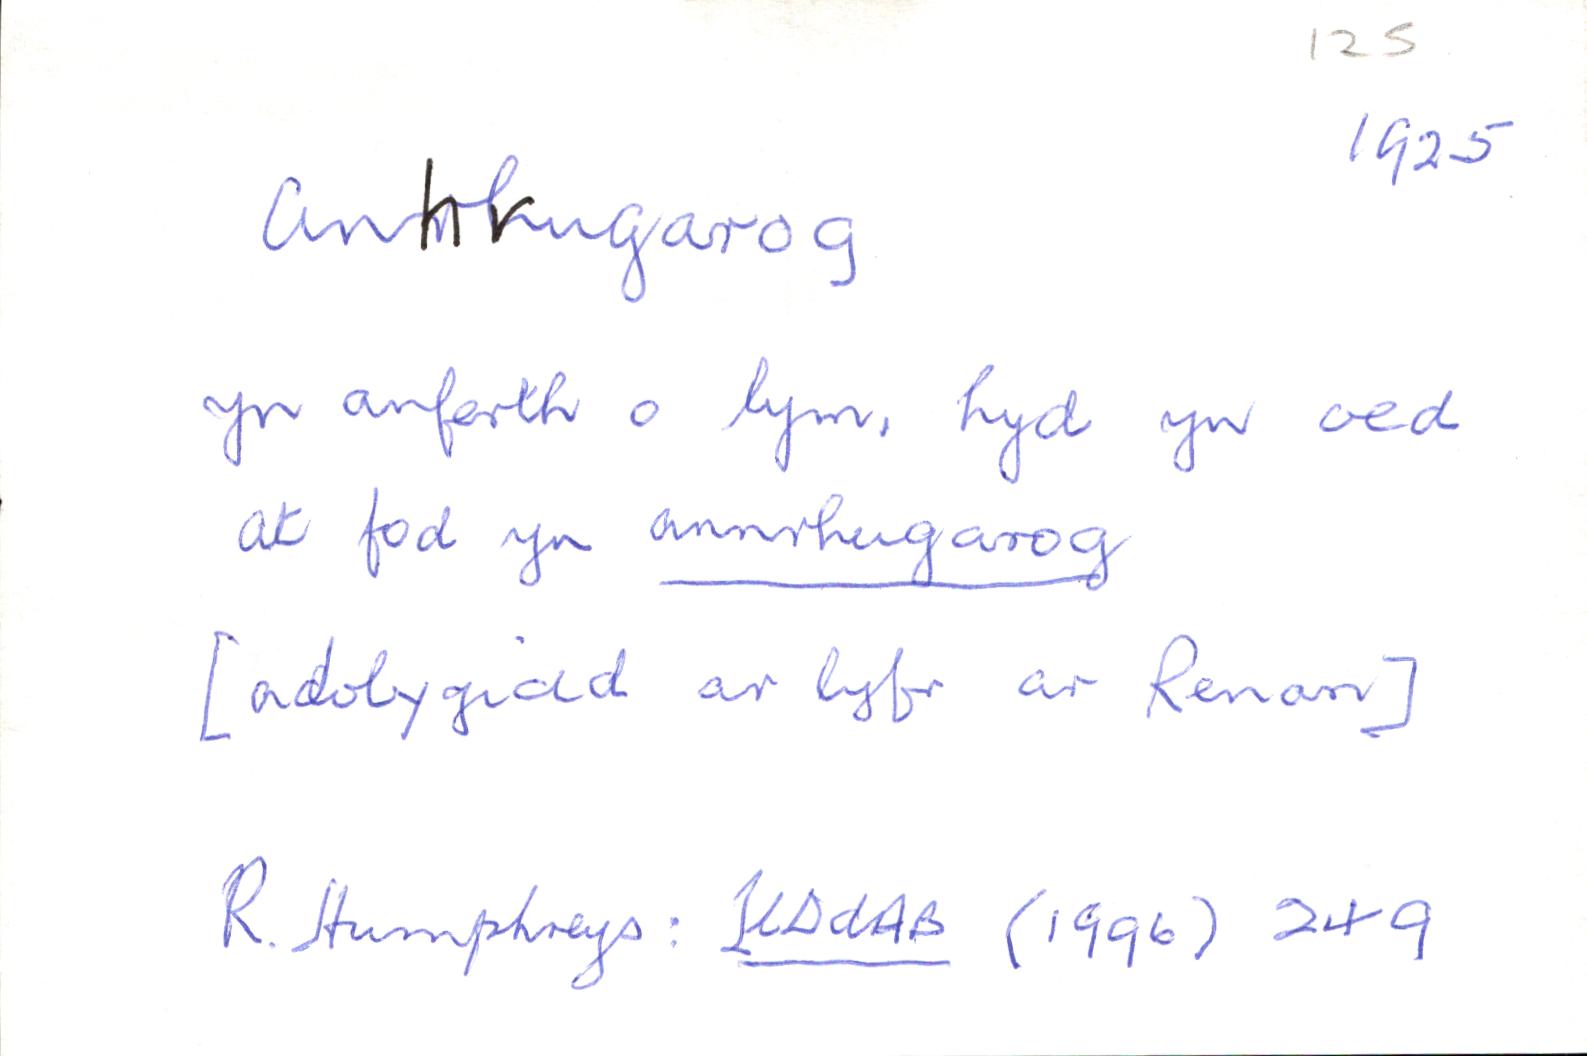 125
1925
anhrugarog
yn anferth o lym, hyd yn oed
at fod yn annrhugarog
[adolygiad ar lyfr ar Renan]
R. Humphreys: (1996) 249